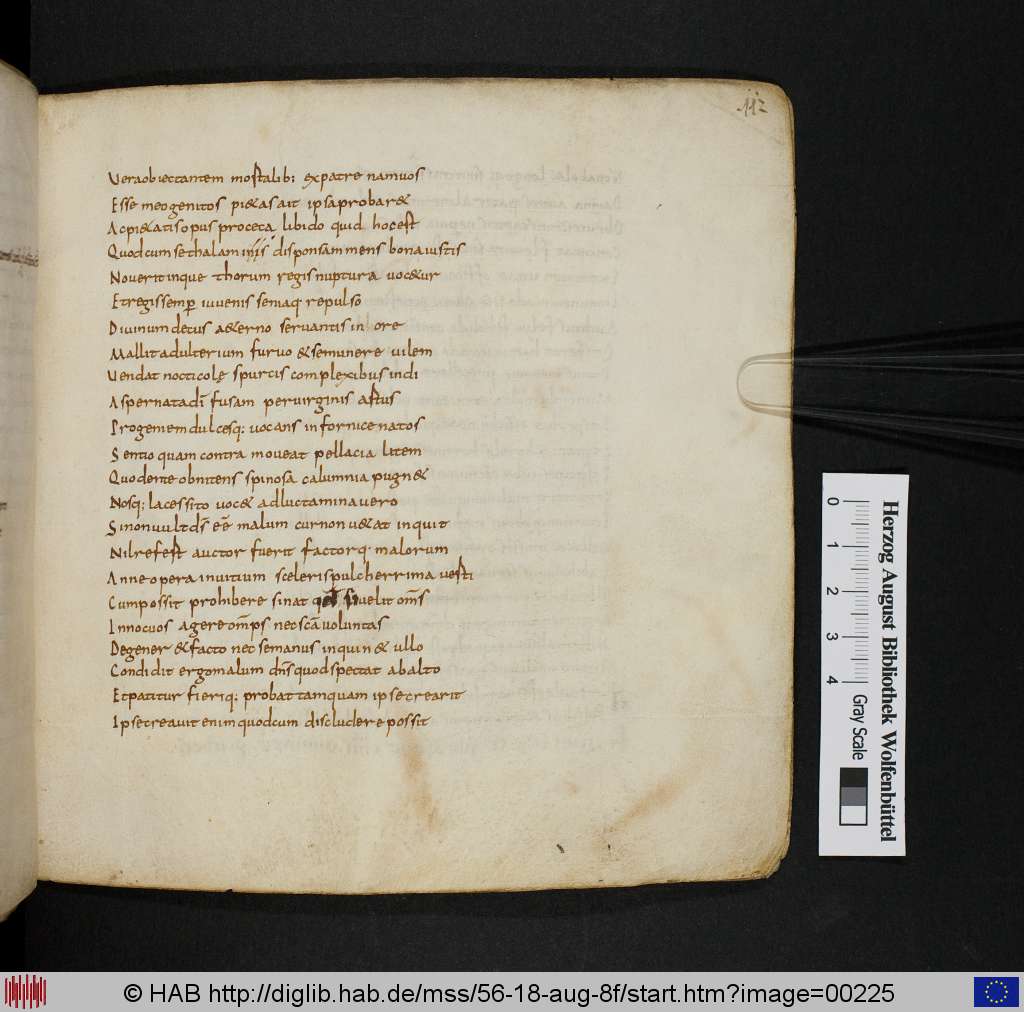 112
Uera obiectantem mostalib; ex patre nam uos
Esse meo genitos pi&as ait ipsa probar&
Ac pi&atis opus procetą libido quid hoc est
Quod cum se thalamiis disponsam mens bona iustis
Nouerit inque thorum regis nuptura uoc&ur
Et regi semp̱ iuuenis seniaq; repulso
Diuinum decus a&erno seruantis in ore
Mallit adulterium furuo & se munere uilem
Uendat nocticolę spurcis complexibus indi
Aspernata di fusam per uirginis astus
Progeniem dulcesq; uocans in fornice natos
Sentio quam contra moueat pellacia litem
Quo dente obnitens spinosa calumnia pugn&
Nosq; lacessito uoc& ad luctamina uero
Si non uult ds̄ eē malum cur non u&at inquit
Nil refest auctor fuerit factorq; malorum
Anne opera in uitium sceleris pulcherrima uesti
Cum possit prohibere sinat si uelit om̄s
Innocuos agere omp̄s nec sc̄a uoluntas
Degener & facto nec se manus inquin& ullo
Condidit ergo malum dn̄s quod spectat ab alto
Et patitur fieriq; probat tamquam ipse crearit
Ipse creauit enim quod cum discludere possit
Herzog August Bibliothek Wolfenbüttel
0 1 2 3 4 Gray Scale
© HAB http://diglib.hab.de/mss/56-18-aug-8f/start.htm?image=00225